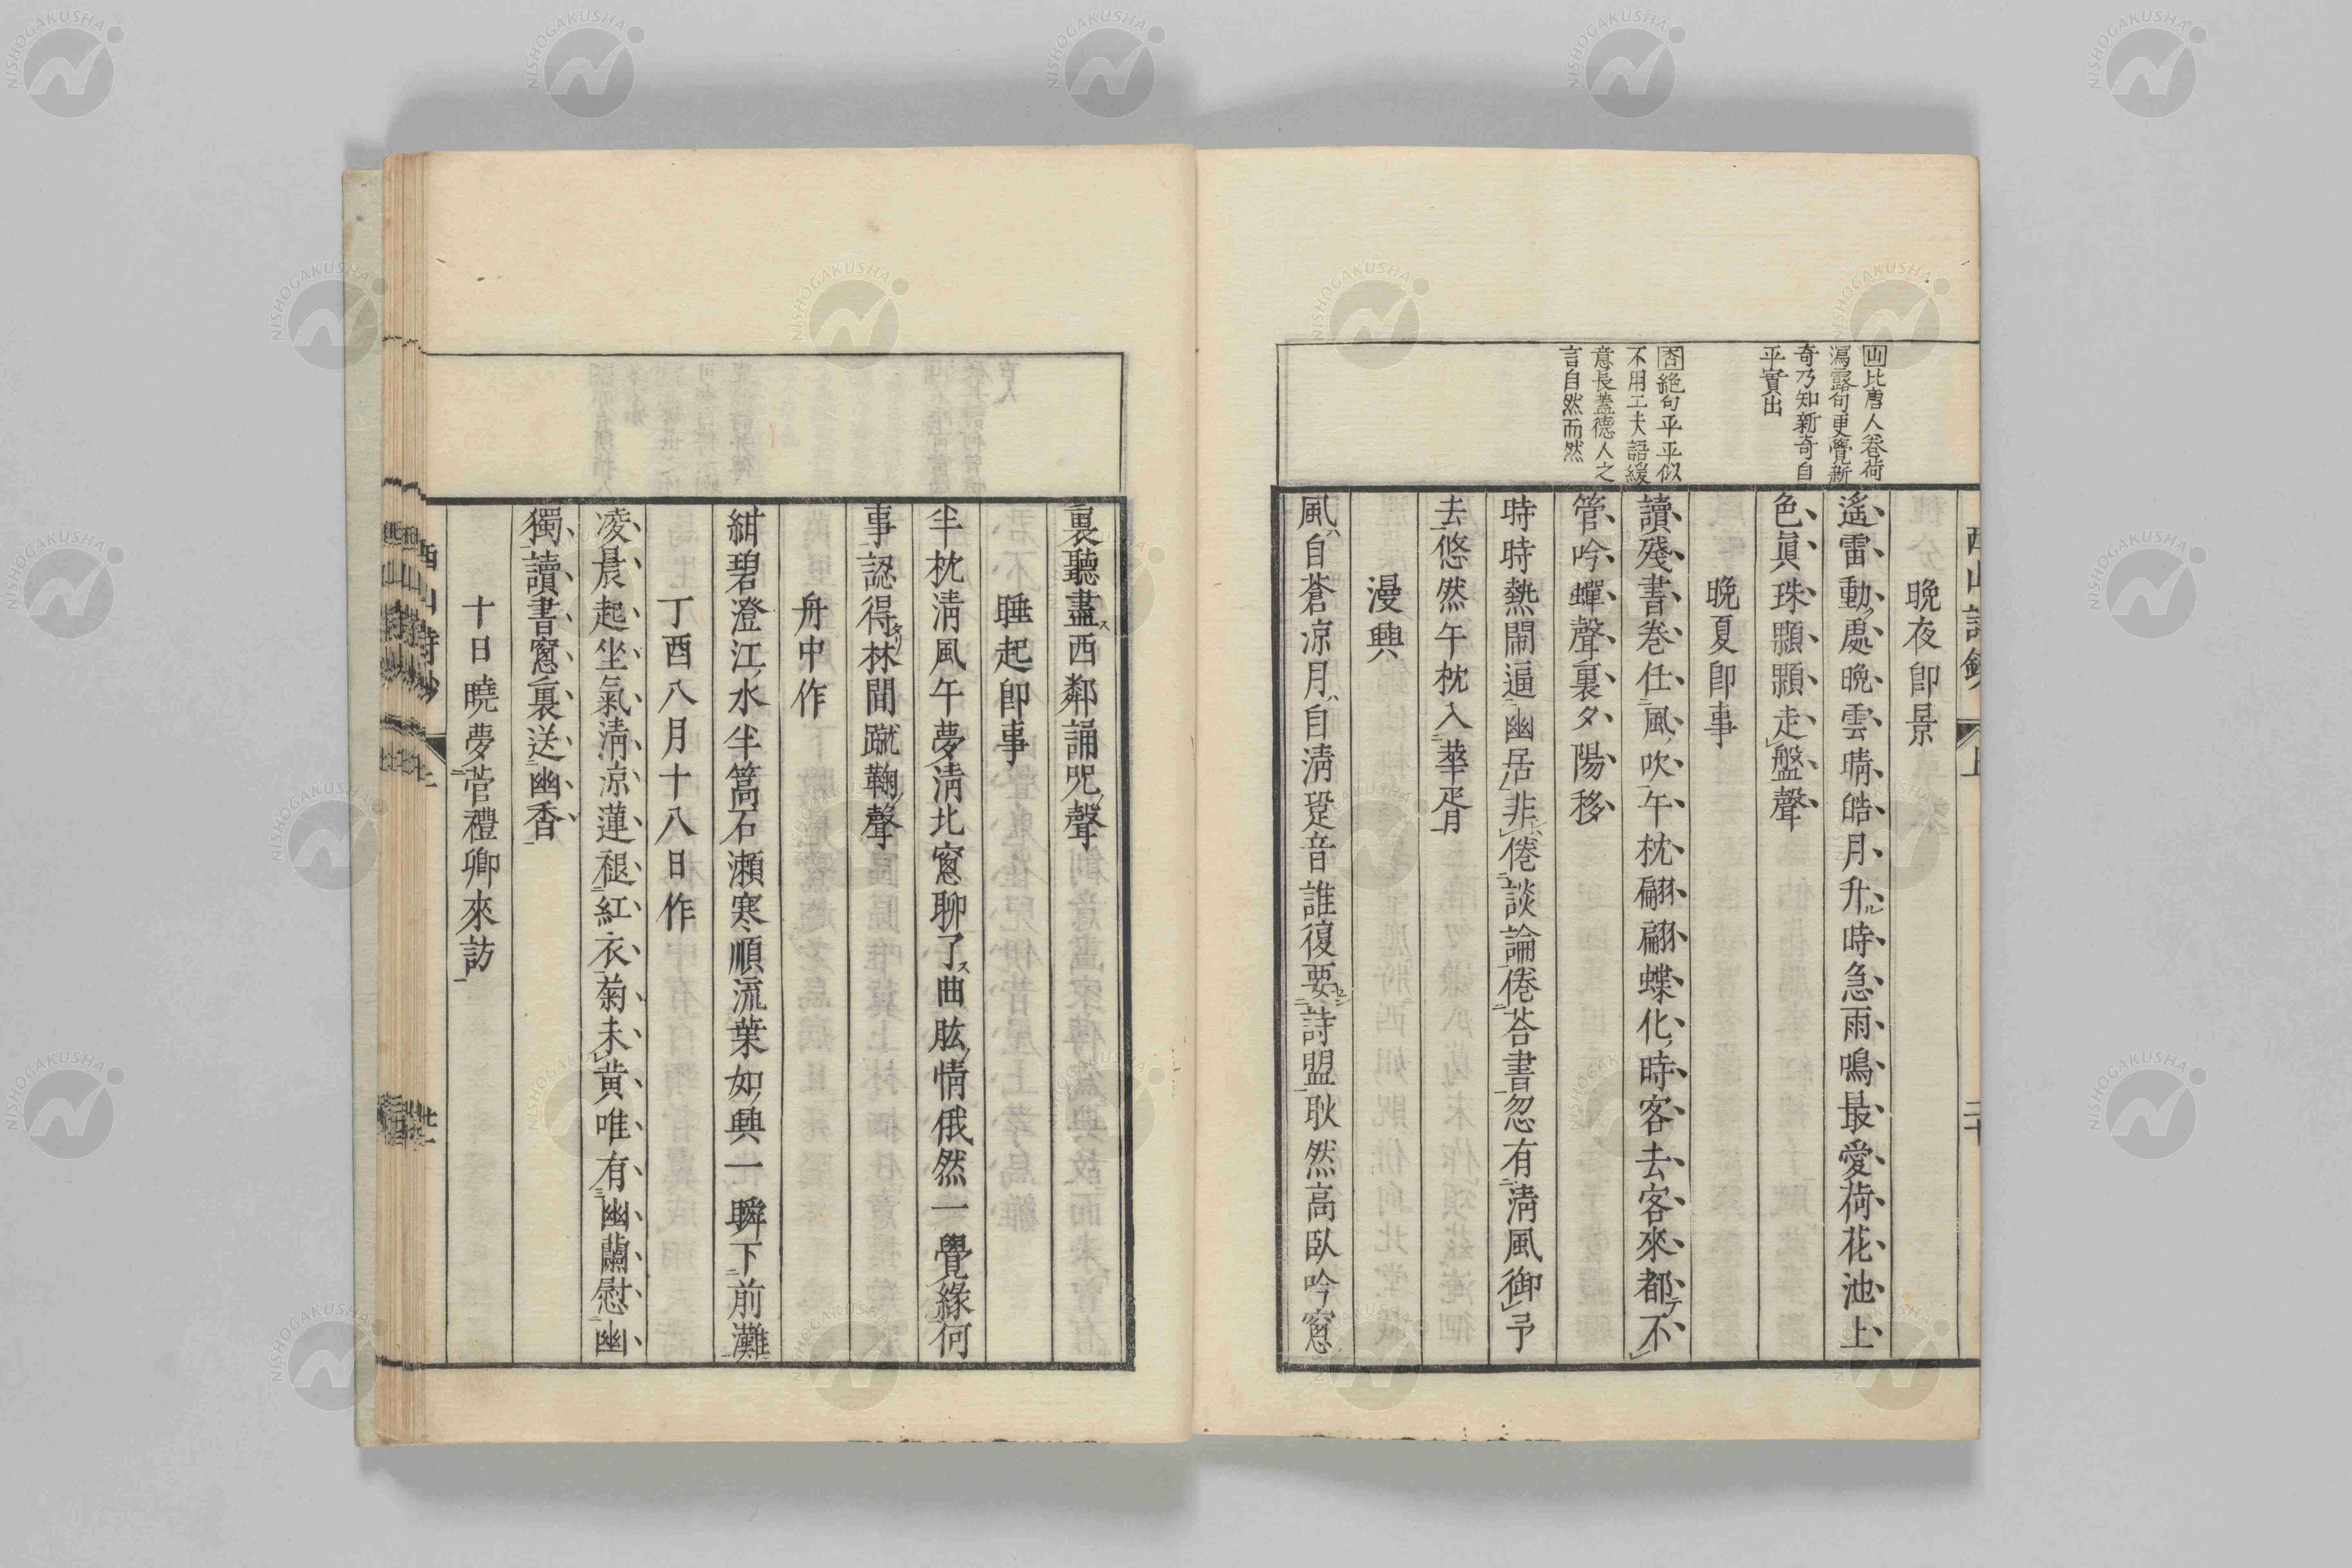 山比唐人卷荷
瀉露句更覺新
奇乃知新奇自
平實出
杏絶句平平似
不用工夫語緩
意長蓋德人之
言自然而然
西山詩鈔 上 二十
晩夜卽景
遙雷動處晩雲晴皓月升時急雨鳴最愛荷花池上
色眞珠顆顆走盤聲
晩夏卽事
讀殘書卷仕風吹午枕翩翩蝶化時客去客來都不
管吟蟬聲裏夕陽移
時時熱鬧逼幽居非倦談論倦荅書忽有淸風御予
去悠然午枕入華胥
漫興
風自蒼凉月自淸跫音誰復要詩盟耿然高臥吟窻
裏聽盡西鄰誦咒聲
睡起卽事
半枕淸風午夢淸北窻聊了曲肱情俄然一覺緣何
事認得林間蹴鞠聲
舟中作
紺碧澄江水半篙石瀨寒順流葉如輿一瞬下前灘
丁酉八月十八日作
凌晨起坐氣淸凉蓮褪紅衣菊未黃唯有幽蘭慰幽
獨讀書窻裏送幽香
十日曉夢菅禮卿來訪
西山詩鈔 上 廿一
NISHOGAKUSHA